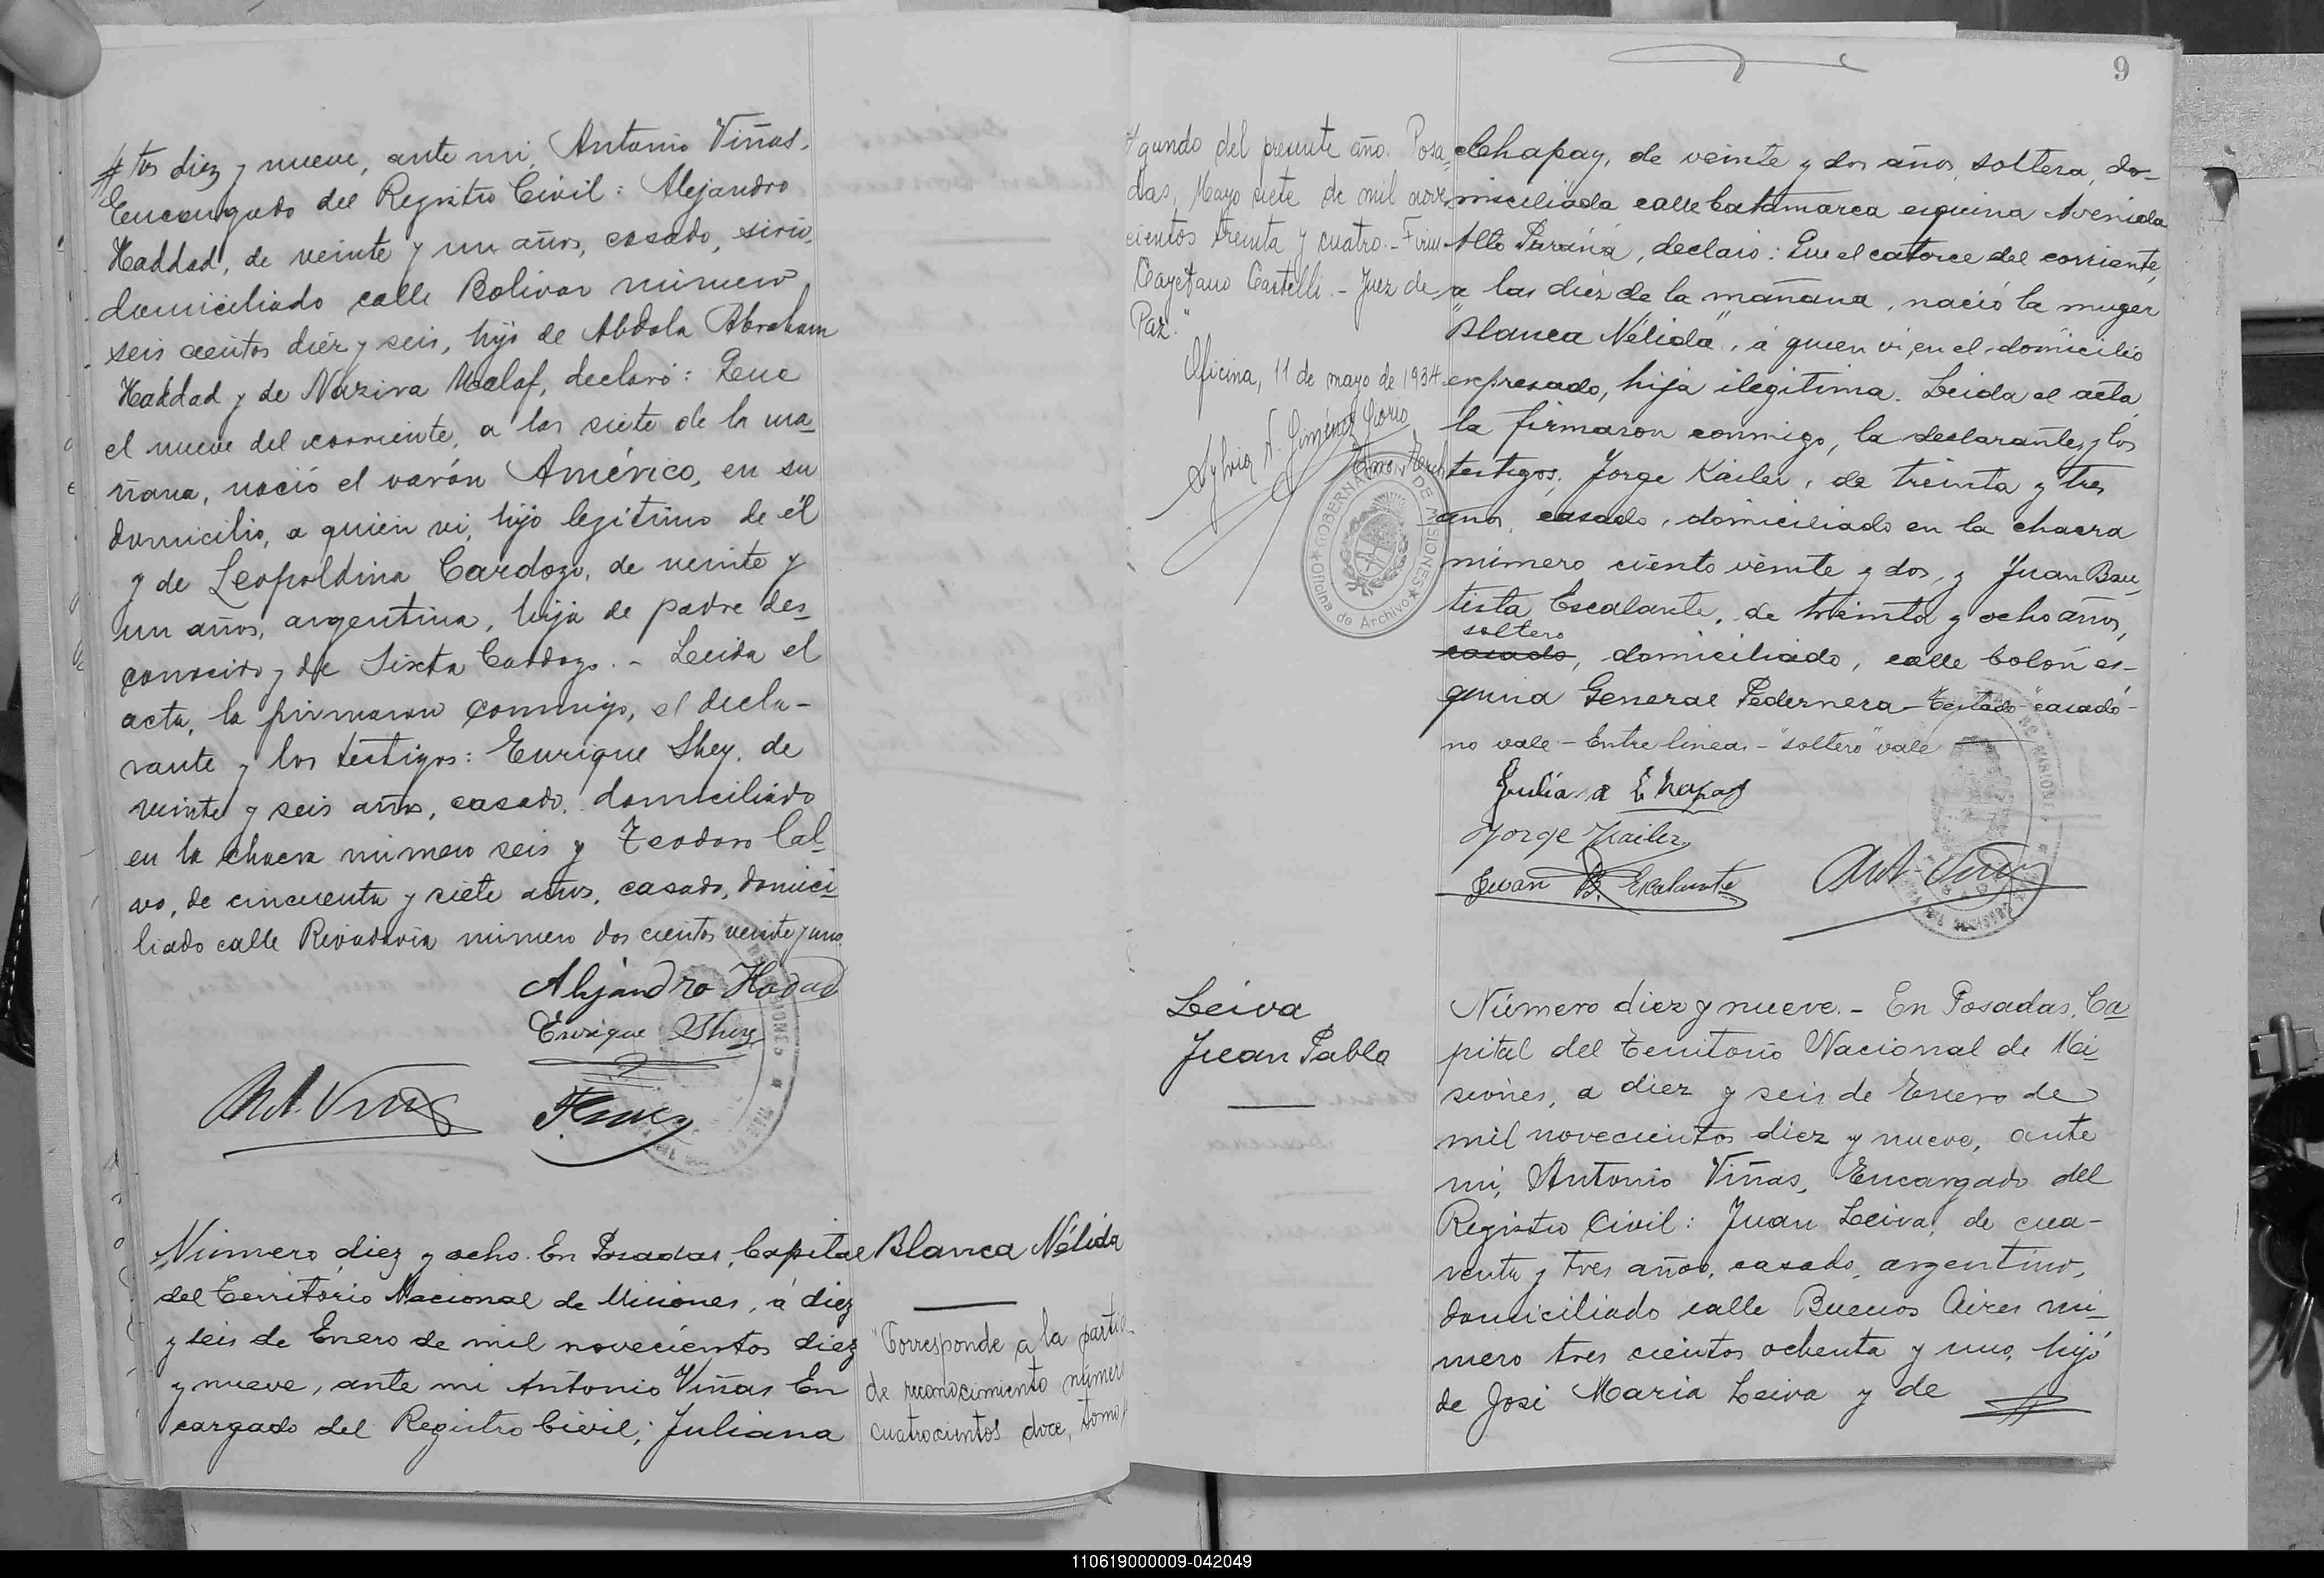 tos diez y nueve, ante mi, Antonio Viñas,
Encargado del Registro Civil: Alejandro
Haddad, de veinte y un años, casado, sirio,
domiciliado calle Bolivar número
seis cientos diez y seis, hijo de Abdala Abraham
Haddad y de Nazira Malaf, declaró: Que
el nueve del corriente, a las siete de la ma-
ñana, nació el varón Américo, en su
domicilio, a quien vi, hijo legítimo de él
y de Leopoldina Cardozo, de veinte y
un años, argentina, hija de padre des-
conocido y de Sixta Cardozo. - Leida el
acta, la firmaron conmigo, el decla-
rante y los testigos: Enrique Shey, de
veinte y seis años, casado, domiciliado
en la chacra número seis y Teodoro Cal-
vo, de cincuenta y siete años, casado, domici-
liado calle Rivadavia número dos cientos veinte y uno
Alejandro Hadad
Enrique Shey
Ant. Viñas
Número diez y ocho. En Posadas, Capital
del Territorio Nacional de Misiones, á diez
y seis de Enero de mil novecientos diez
y nueve, ante mi Antonio Viñas En
cargado del Registro Civil; Juliana
Blanca Nélida
"Corresponde a la partida
de reconocimiento número
cuatrocientos doce, tomo
9
gundo del presente año. Posa-
das, Mayo siete de mil nove
cientos treinta y cuatro. - Firm
Cayetano Castelli. - Juez de
Paz."
Oficina, 11 de mayo de 1934.
GOBERNACION DE MISIONES
Oficina de Archivo
Chapay, de veinte y dos años, soltera, do-
miciliada calle Catamarca esquina Avenida
Alto Paraná, declaró: Que el catorce del corriente,
a las diez de la mañana, nació la muger
"Blanca Nélida", á quien vi, en el domicilio
expresado, hija ilegítima. Leida el acta
la firmaron conmigo, la declarante, y los
testigos; Jorge Kailer, de treinta y tres
años, casado, domiciliado en la chacra
número ciento veinte y dos, y Juan Bau-
tista Escalante, de treinta y ocho años,
soltero
casado, domiciliado, calle Colón es-
quina General Pedernera - Testado "casado" -
no vale - Entre lineas - "soltero" vale
Juliana Chapay
Jorge Kailer
Juan B. Escalante
Ant. Viñas
Leiva
Juan Pablo
Número diez y nueve. - En Posadas, Ca-
pital del Territorio Nacional de Mi-
siones, a diez y seis de Enero de
mil novecientos diez y nueve, ante
mi, Antonio Viñas, Encargado del
Registro Civil: Juan Leiva, de cua-
renta y tres años, casado, argentino,
domiciliado calle Buenos Aires nú-
mero tres cientos ochenta y uno, hijo
de José María Leiva y de
110619000009-042049